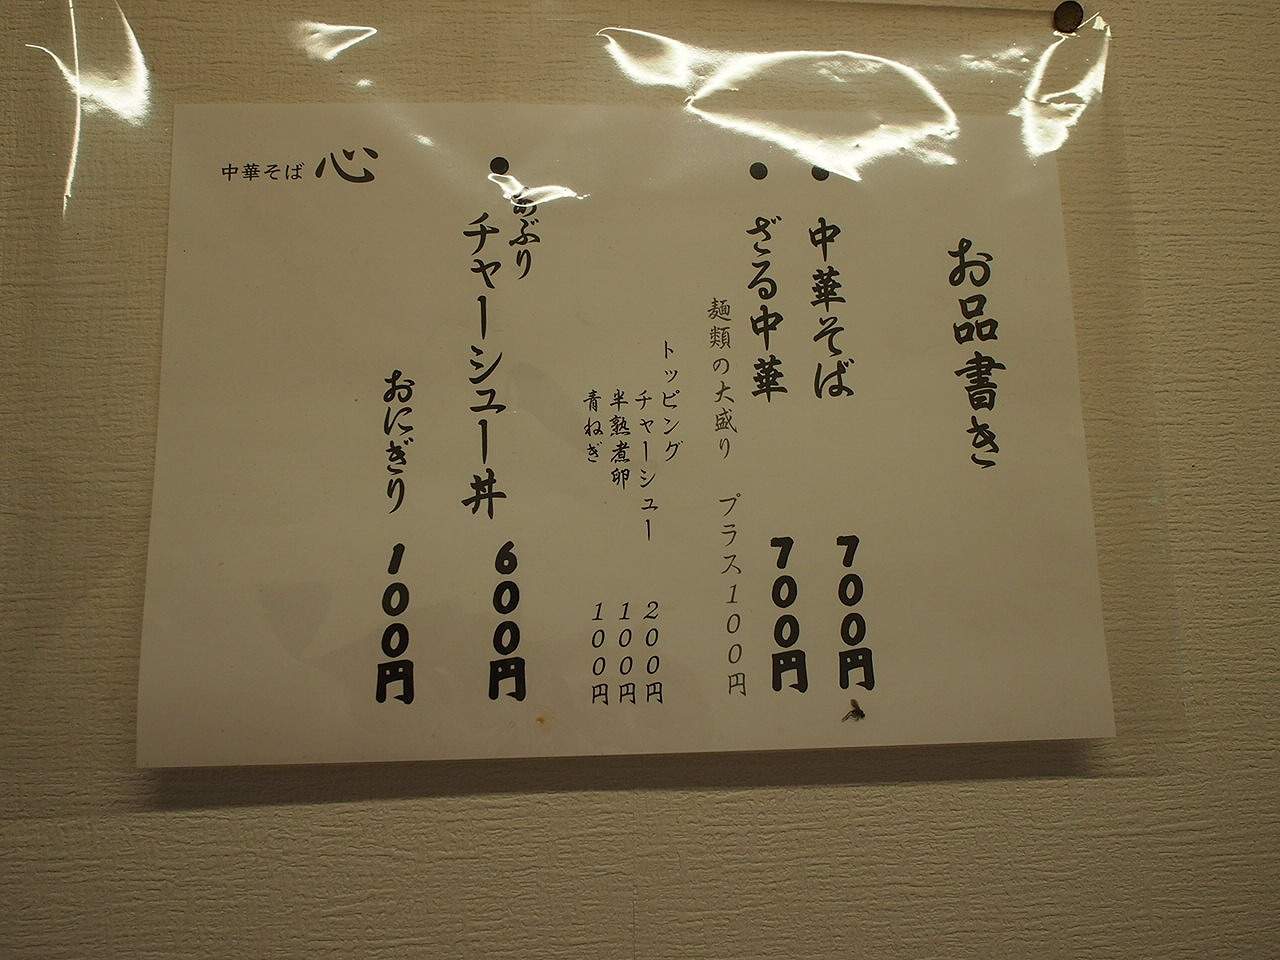 お品書き
● 中華そば 700円
● ざる中華 700円
麺類の大盛り プラス100円
トッピング
チャーシュー 200円
半熟煮卵 100円
青ねぎ 100円
● あぶり
チャーシュー丼 600円
おにぎり 100円
中華そば 心